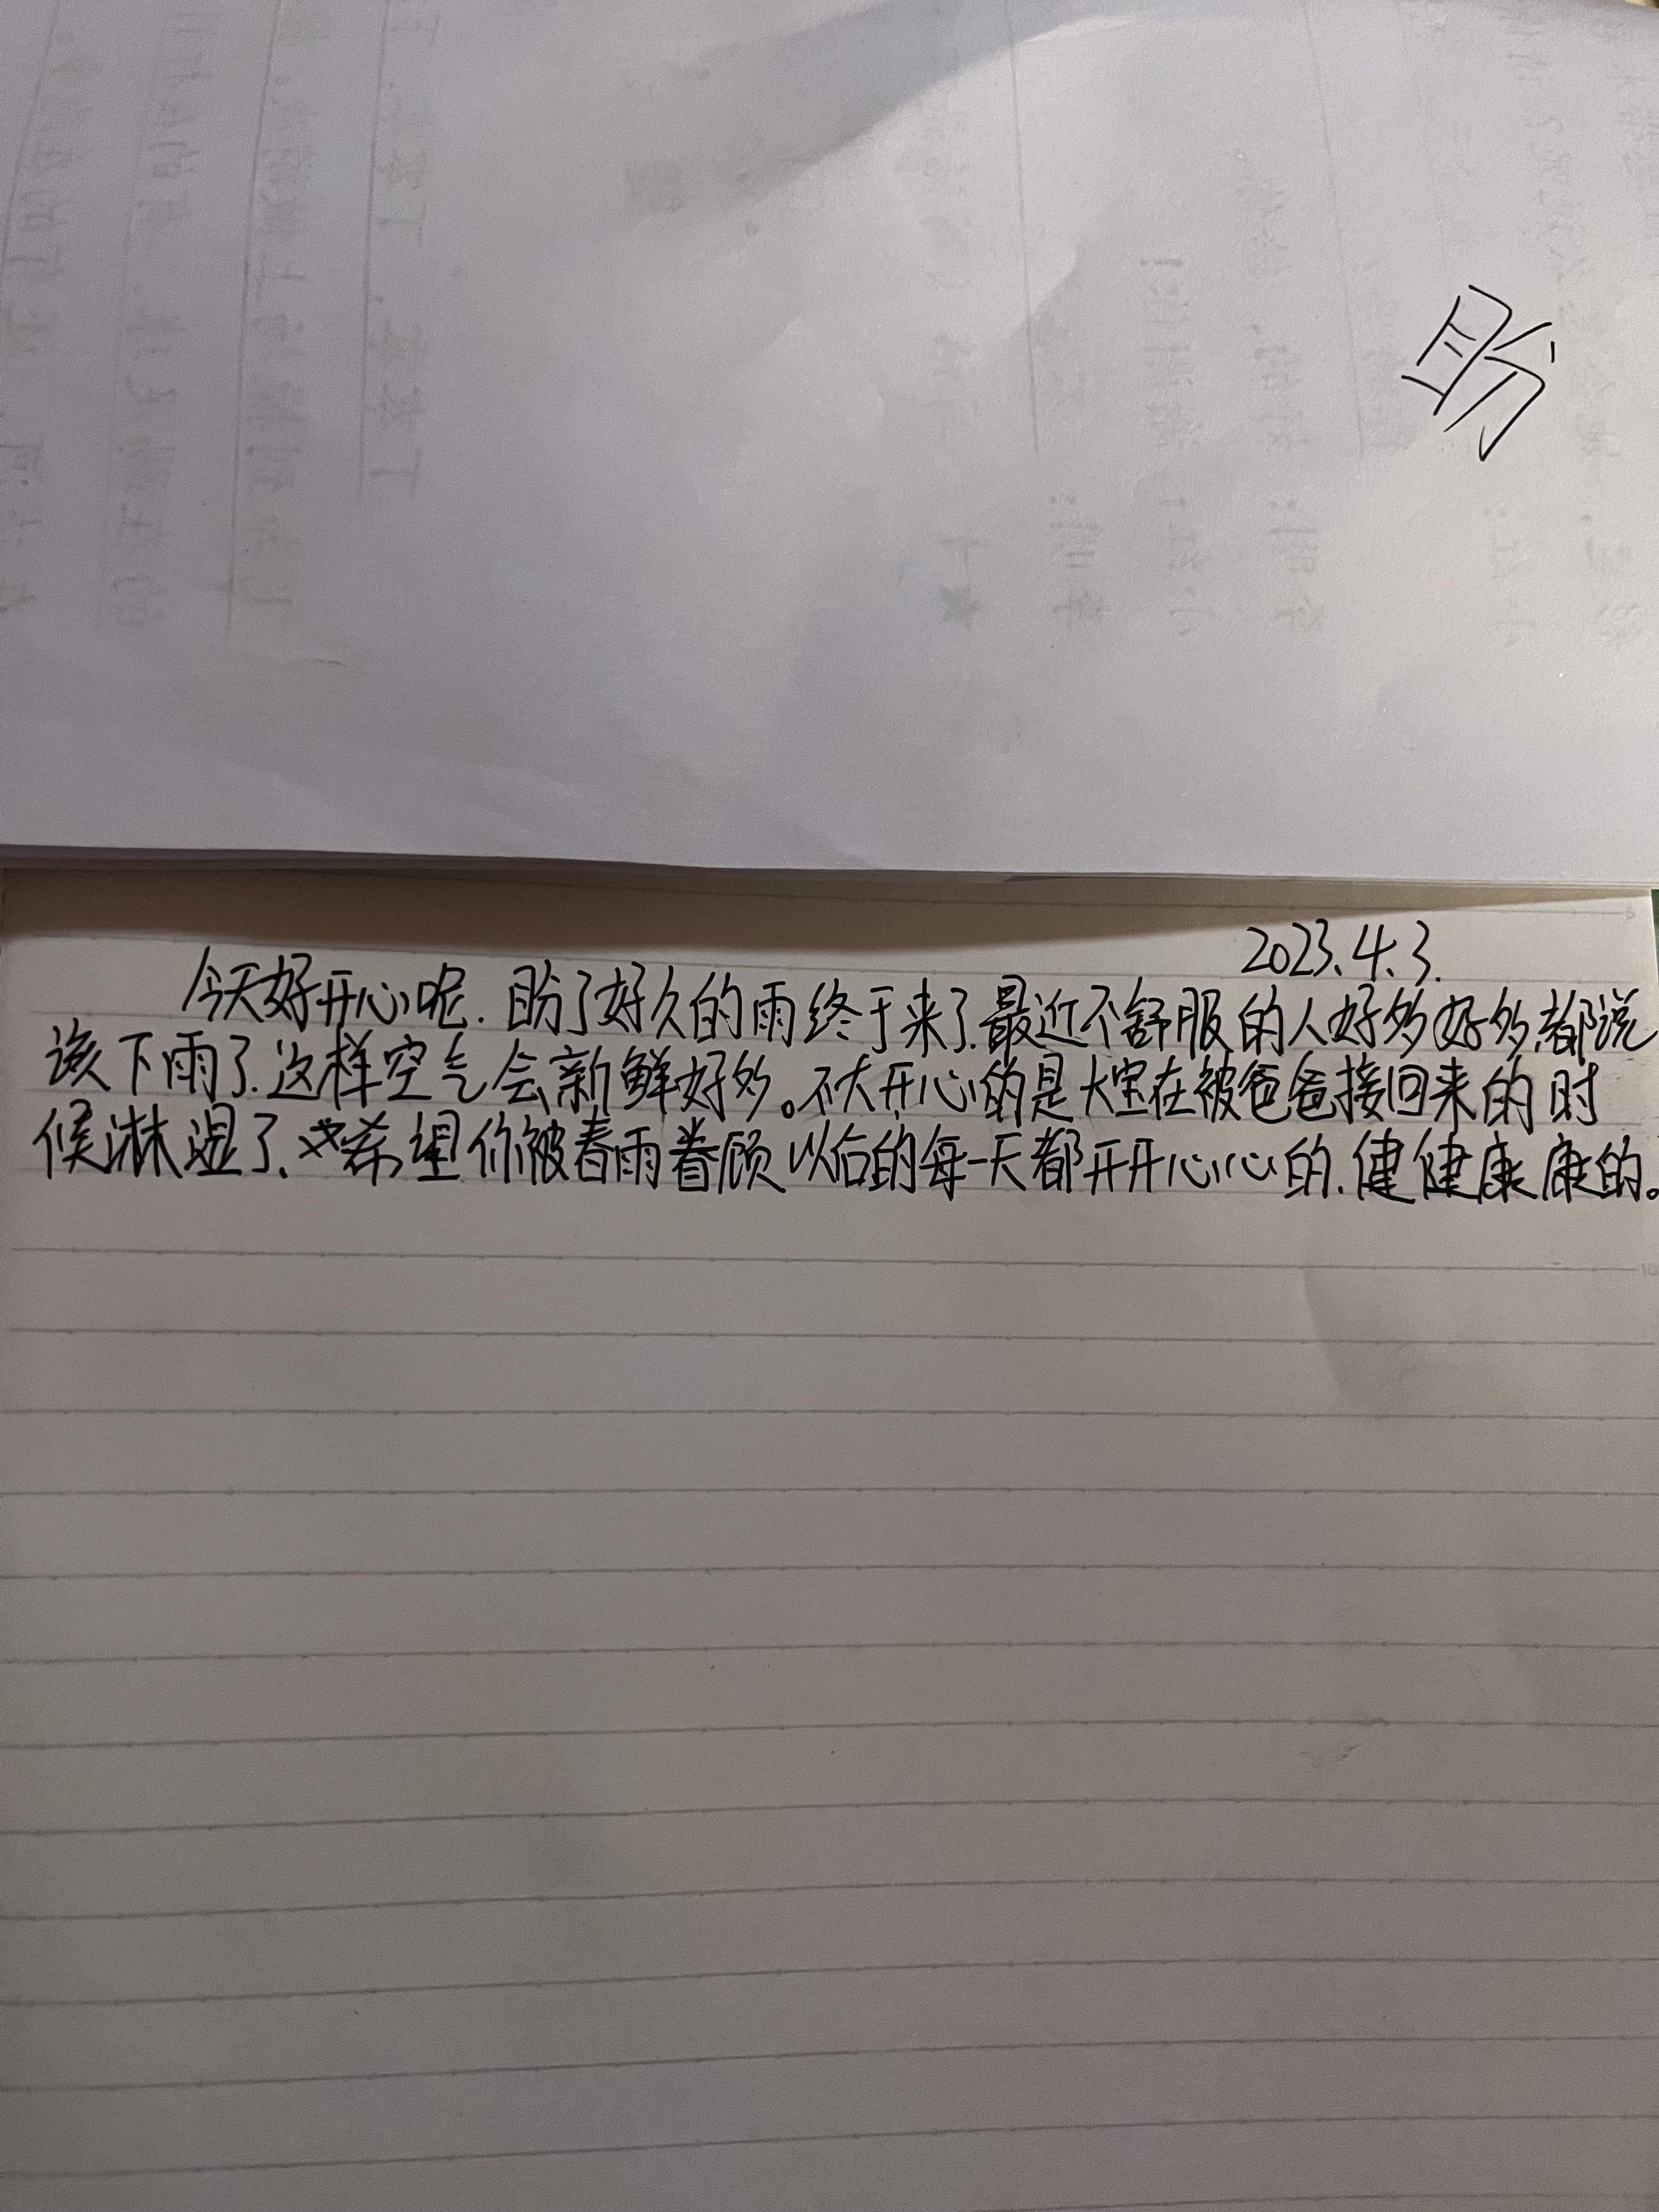 盼
2023.4.3.
今天好开心呢.盼了好久的雨终于来了.最近不舒服的人好多好多,都说
该下雨了.这样空气会新鲜好多。不太开心的是大宝在被爸爸接回来的时
候淋湿了、希望你被春雨眷顾以后的每一天都开开心心的、健健康康的。